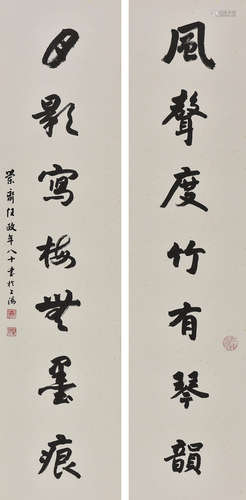 風聲度竹有琴韻
月影寫梅無墨痕
榮齋任政年八十書於上海